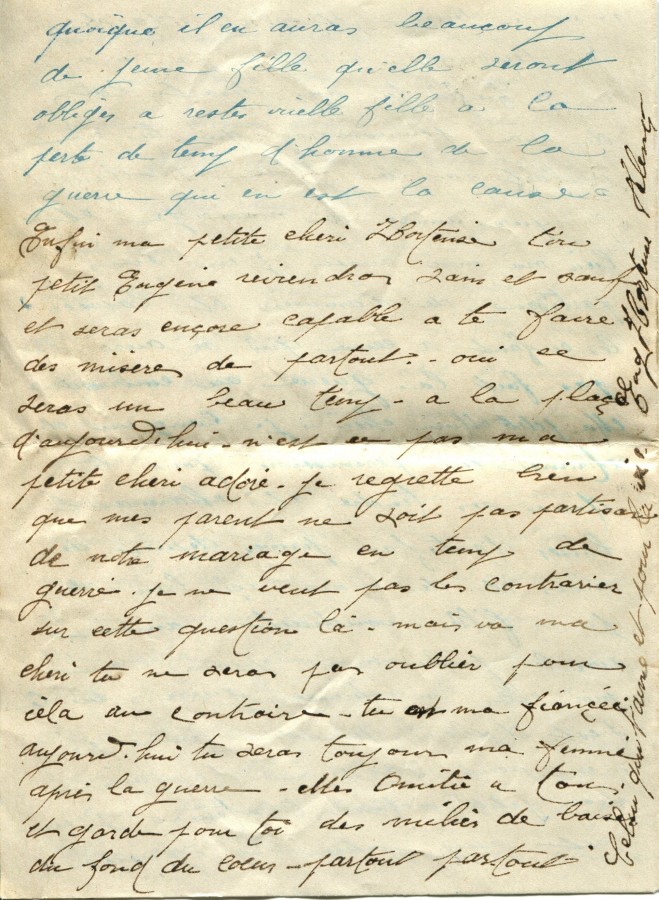 quoique il en auras beaucoup
de jeune fille qu'elle seront
obliges a restes vielle fille a la
perte de temp d'homme de la
guerre qui en est la cause
Enfin ma petite cheri Hortense ton
petit Eugène reviendras sain et sauf
et seras encore capable a te faire
des misères de partout. - oui ce
seras un beau temp - a la place
d'aujourd'hui - n'est ce pas ma
petite cheri adoré - je regrette bien
que mes parent ne soit pas partisans
de notre mariage en temp de
guerre. je ne veut pas les contrarier
sur cette question là - mais va ma
cheri tu ne seras pas oublier pour
cela au contraire - tu es ma fiancée
aujourd'hui tu seras toujour ma femme
après la guerre - Mes Amitié a tous.
et garde pour toi des milier de baisé
du fond du coeur - partout partout
Celui qui t'aime et pour la vie. Eug Hortense